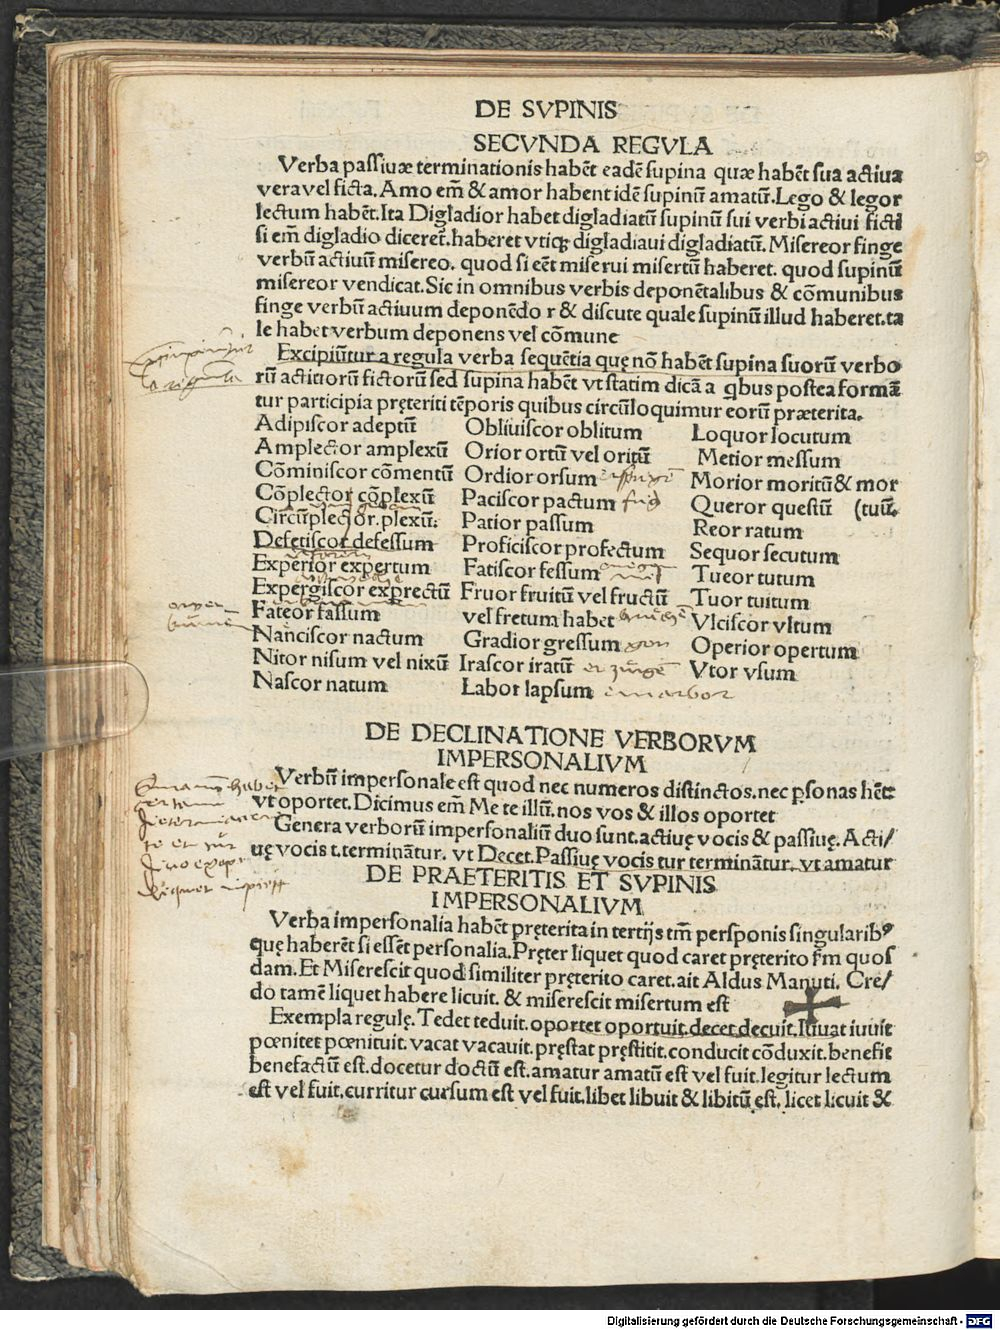 DE SVPINIS
SECVNDA REGVLA
Verba passiuæ terminationis habēt eadē supina quæ habēt sua actiua
vera vel ficta. Amo em̄ & amor habent idē supinū amatū. Lego & legor
lectum habēt. Ita Digladior habet digladiatū supinū sui verbi actiui ficti
si em̄ digladio diceret. haberet vtiqꝫ digladiaui digladiatū. Misereor finge
verbū actiuū misereo. quod si eēt miserui misertū haberet. quod supinū
misereor vendicat. Sic in omnibus verbis deponētalibus & cōmunibus
finge verbū actiuum deponēdo r & discute quale supinū illud haberet. ta
le habet verbum deponens vel cōmune
Excipiūtur a regula verba sequētia quę nō habēt supina suorū verbo
rū actiuorū fictorū sed supina habēt vt statim dicā a qbus postea formā
tur participia pręteriti tēporis quibus circūloquimur eorū præterita.
Adipiscor adeptū
Amplector amplexū
Cōminiscor cōmentū
Cōplector cōplexū
Circūplector. plexū.
Defetiscor defessum
Experior expertum
Expergiscor exprectū
Fateor fassum
Nanciscor nactum
Nitor nisum vel nixū
Nascor natum
Obliuiscor oblitum
Orior ortū vel oritū
Ordior orsum
Paciscor pactum
Patior passum
Proficiscor profectum
Fatiscor fessum
Fruor fruitū vel fructū
vel fretum habet
Gradior gressum
Irascor iratū
Labor lapsum
Loquor locutum
Metior messum
Morior moritū & mor
Queror questū (tuū.
Reor ratum
Sequor secutum
Tueor tutum
Tuor tuitum
Vlciscor vltum
Operior opertum
Vtor vsum
DE DECLINATIONE VERBORVM
IMPERSONALIVM
Verbū impersonale est quod nec numeros distinctos. nec psonas hēt
vt oportet. Dicimus em̄ Me te illū. nos vos & illos oportet
Genera verborū impersonaliū duo sunt. actiuę vocis & passiuę. Acti/
uę vocis t. terminātur. vt Decet. Passiuę vocis tur terminātur. vt amatur
DE PRAETERITIS ET SVPINIS
IMPERSONALIVM
Verba impersonalia habēt pręterita in tertijs tm̄ persponis singularibꝰ
quę haberēt si essēt personalia. Pręter liquet quod caret pręterito fm quos
dam. Et Miserescit quod similiter pręterito caret. ait Aldus Manuti. Cre/
do tamē liquet habere licuit. & miserescit misertum est
Exempla regulę. Tedet teduit. oportet oportuit. decet decuit. Iuuat iuuit
pœnitet pœnituit. vacat vacauit. pręstat pręstitit. conducit cōduxit. benefit
benefactū est. docetur doctū est. amatur amatū est vel fuit. legitur lectum
est vel fuit. curritur cursum est vel fuit. libet libuit & libitū est. licet licuit &
Digitalisierung gefördert durch die Deutsche Forschungsgemeinschaft - DFG